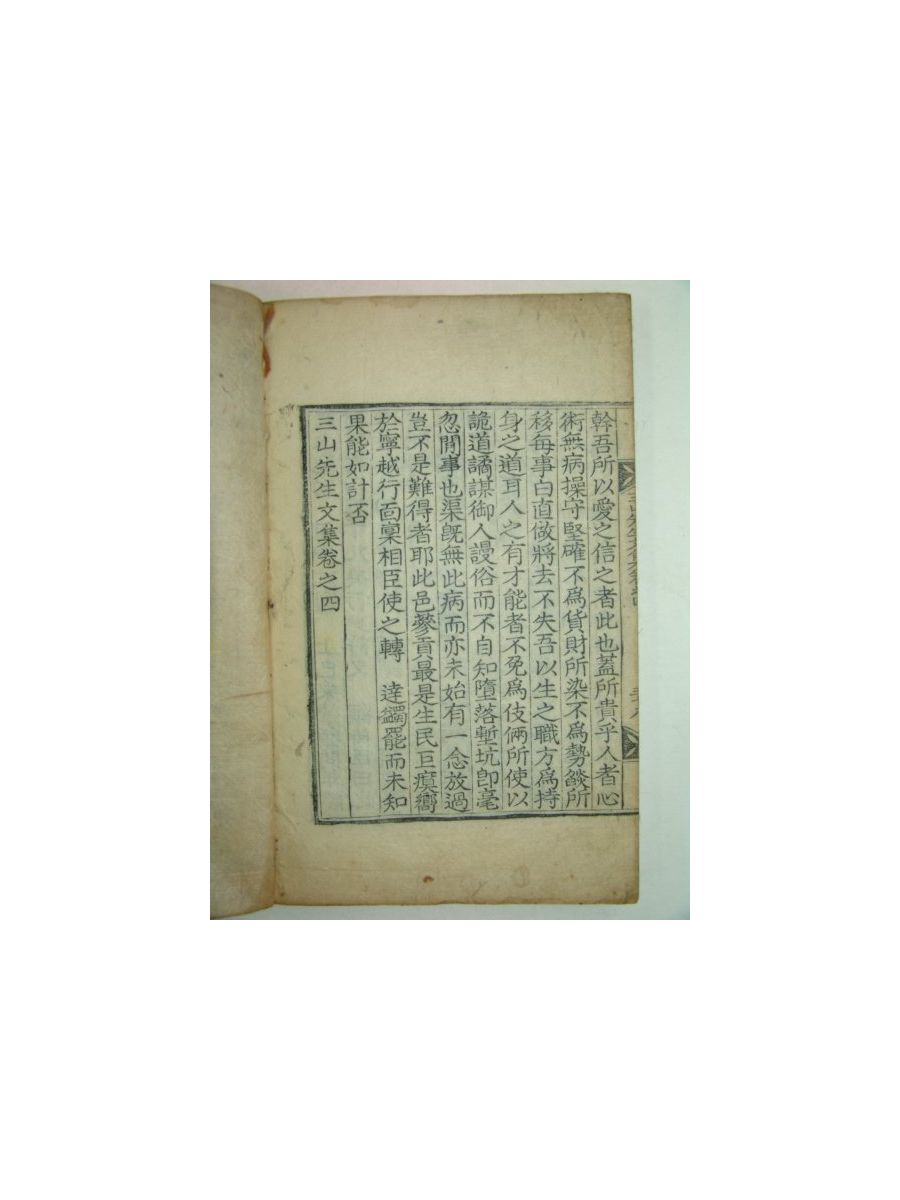 幹吾所以愛之信之者此也蓋所貴乎人者心
術無病操守堅確不爲貨財所染不爲勢燄所
移每事白直做將去不失吾以生之職方爲持
身之道耳人之有才能者不免爲伎倆所使以
詭道譎謀御人謾俗而不自知墮落塹坑卽毫
忽閒事也渠旣無此病而亦未始有一念放過
豈不是難得者耶此邑蔘貢最是生民巨瘼嚮
於寧越行面稟相臣使之轉 達蠲罷而未知
果能如計否
三山先生文集卷之四